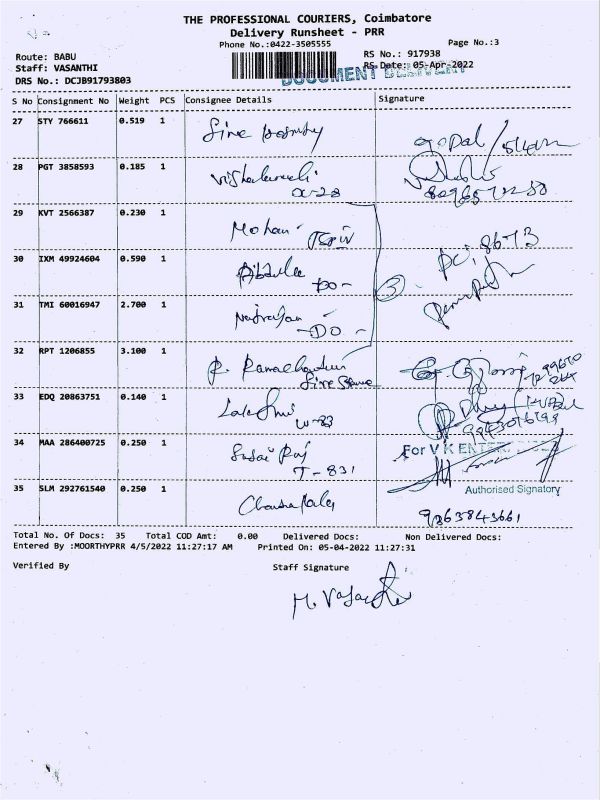 THE PROFESSIONAL COURIERS, Coimbatore
Delivery Runsheet - PRR
Phone No.:0422-3505555
Page No.:3
Route: BABU
RS No.: 917938
Staff: VASANTHI
RS Date: 05-Apr-2022
DOCUMENT DELIVERY
DRS No.: DCJB91793803
S No Consignment No Weight PCS Consignee Details Signature
27 STY 766611 0.519 1 Gopal
28 PGT 3858593 0.185 1
29 KVT 2566387 0.230 1 Mohan
30 IXM 49924604 0.590 1 Do -
31 TMI 60016947 2.700 1 Natrajan - Do -
3
32 RPT 1206855 3.100 1 R. Ramachandran
33 EDQ 20863751 0.140 1 Lakshmi
W-83
34 MAA 286400725 0.250 1 For V K
T-831
Authorised Signatory
35 SLM 292761540 0.250 1 Chandrakala
9363843661
Total No. Of Docs: 35 Total COD Amt: 0.00 Delivered Docs: Non Delivered Docs:
Entered By :MOORTHYPRR 4/5/2022 11:27:17 AM Printed On: 05-04-2022 11:27:31
Verified By Staff Signature
M. Vasanthi